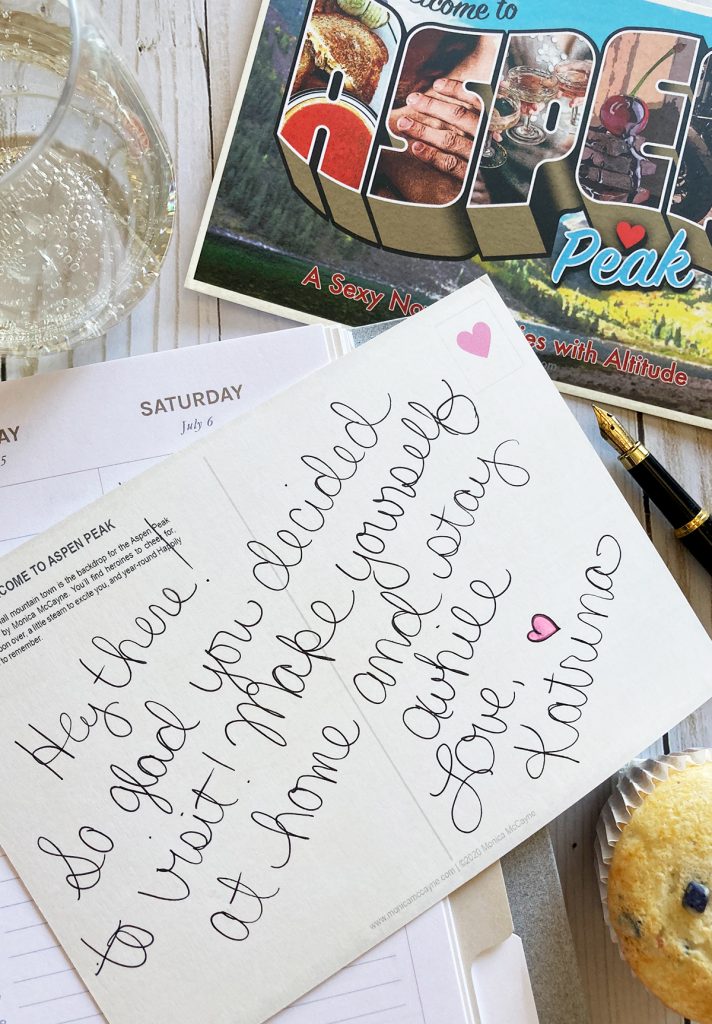 Welcome to
ASPEN
Peak
A Sexy No
ies with Altitude
SATURDAY
July 6
AY
5
COME TO ASPEN PEAK
all mountain town is the backdrop for the Aspen Peak
by Monica McCayne. You'll find heroines to cheer for,
oon over, a little steam to excite you, and year-round Happily
to remember.
Hey there!
So glad you decided
to visit! Make yourself
at home and stay
awhile
Love,
Katrina
www.monicamccayne.com | ©2020 Monica McCayne